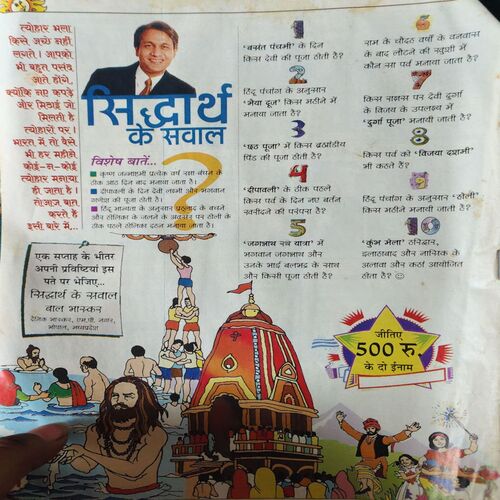 त्योहार भला
किसे अच्छे नहीं
लगते। आपको
भी बहुत पसंद
आते होंगे,
क्योंकि नए कपड़े
और मिठाई जो
मिलती है
त्योहारों पर।
भारत में तो वैसे
भी हर महीने
कोई-न-कोई
त्योहार मनाया
ही जाता है।
तो आज बात
करते हैं
इसी बारे में...
सिद्धार्थ
के सवाल
विशेष बातें...
कृष्ण जन्माष्टमी प्रत्येक वर्ष रक्षा बंधन के
ठीक आठ दिन बाद मनाया जाता है।
दीपावली के दिन देवी लक्ष्मी और भगवान
गणेश की पूजा होती है।
हिंदू मान्यता के अनुसार प्रह्लाद के बचने
और होलिका के जलने के अवसर पर होली के
ठीक पहले होलिका दहन मनाया जाता है।
?
एक सप्ताह के भीतर
अपनी प्रविष्टियां इस
पते पर भेजिए...
सिद्धार्थ के सवाल
बाल भास्कर
दैनिक भास्कर, एम.पी. नगर,
भोपाल, मध्यप्रदेश
1
'बसंत पंचमी' के दिन
किस देवी की पूजा होती है?
2
हिंदू पंचांग के अनुसार
'भैया दूज' किस महीने में
मनाया जाता है?
3
'छठ पूजा' में किस ब्रह्मांडीय
पिंड की पूजा होती है?
4
'दीपावली' के ठीक पहले
किस पर्व के दिन नए बर्तन
खरीदने की परंपरा है?
5
'जगन्नाथ रथ यात्रा' में
भगवान जगन्नाथ और
उनके भाई बलभद्र के साथ
और किसकी पूजा होती है?
6
राम के चौदह वर्षों के वनवास
के बाद लौटने की खुशी में
कौन सा पर्व मनाया जाता है?
7
किस राक्षस पर देवी दुर्गा
के विजय के उपलक्ष्य में
'दुर्गा पूजा' मनाया जाता है?
8
किस पर्व को 'विजया दशमी'
भी कहते हैं?
9
हिंदू पंचांग के अनुसार 'होली'
किस महीने मनायी जाती है?
10
'कुंभ मेला' हरिद्वार,
इलाहाबाद और नासिक के
अलावा और कहां आयोजित
होता है?
जीतिए
500 रु.
के दो ईनाम